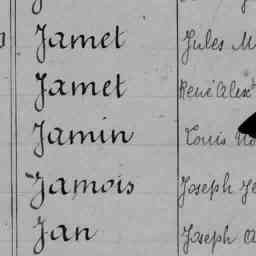 Jamet Jules M
Jamet René Alex
Jamin Louis
Jamois Joseph
Jan Joseph